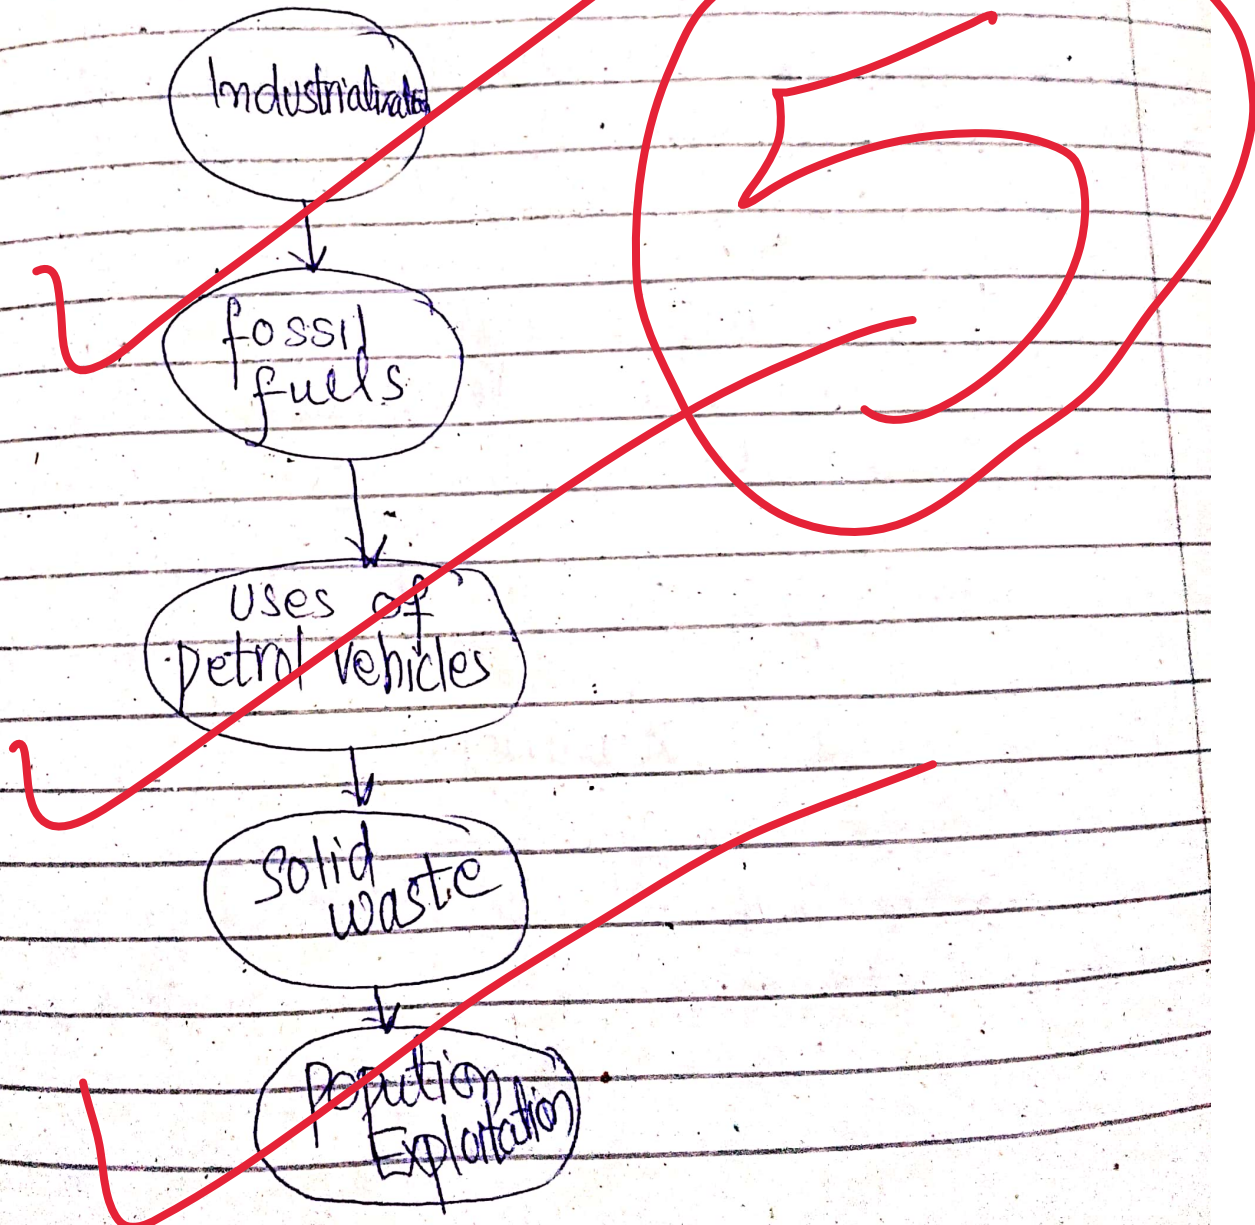 Industrialization
5
fossil
fuels
uses of
petrol vehicles
Solid
waste
Popution
Exploitation